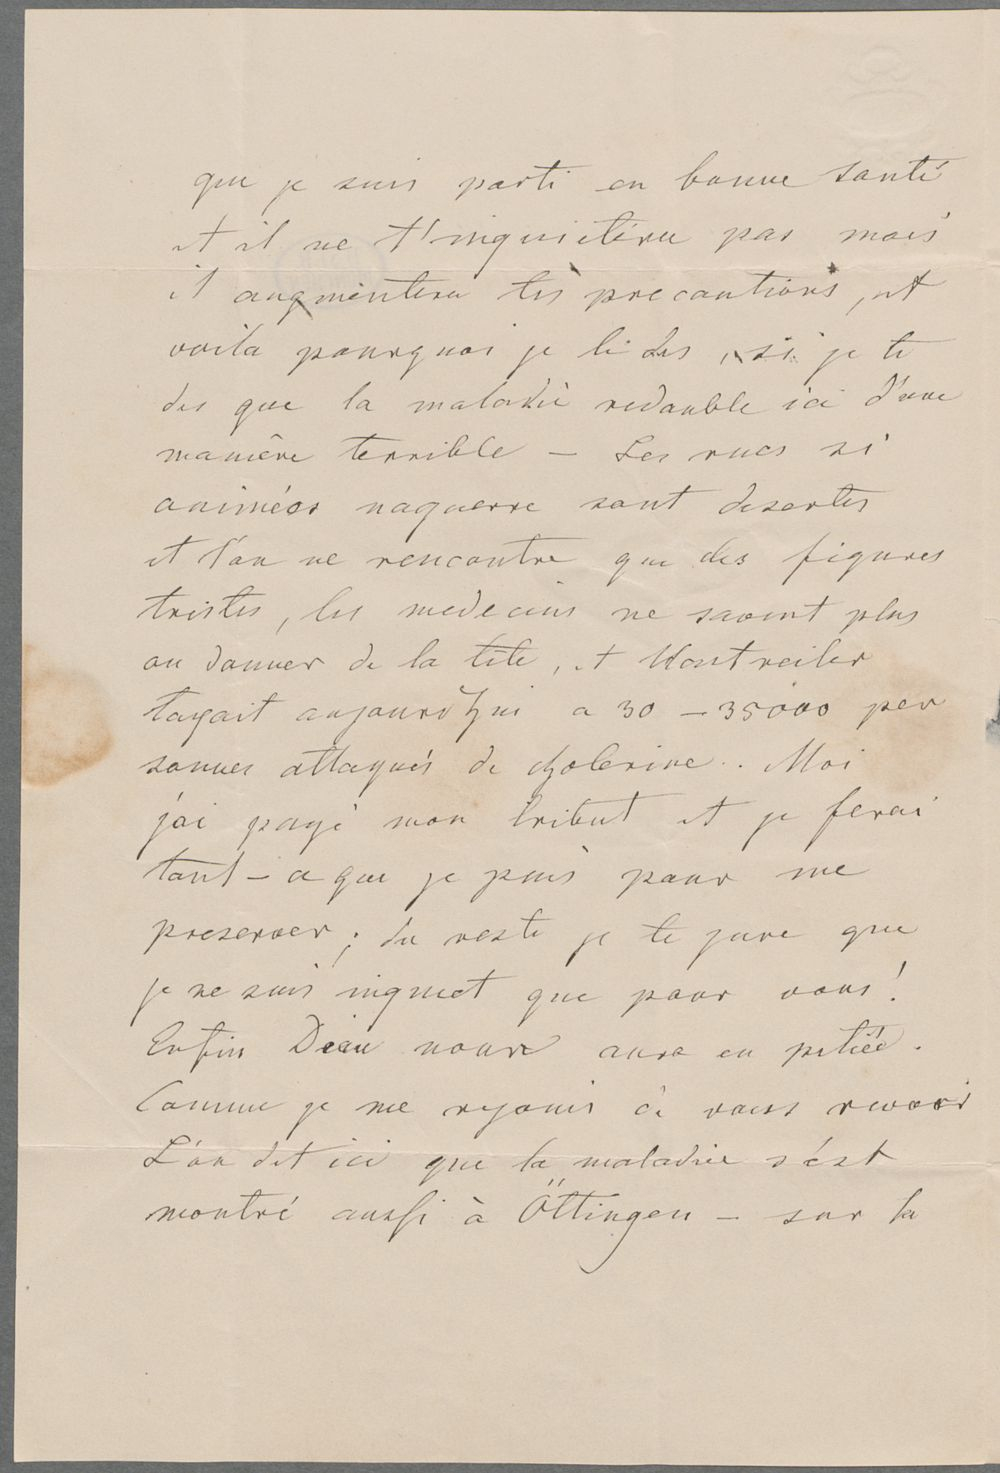 que je suis parti en bonne santé
et il ne t'inquietera pas mais
il augmentera tes precautions, et
voila pourquoi je le dis, si je te
dis que la maladie redouble ici d'une
manêre terrible — Les rues si
animées naguerre sont desertes
et l'on ne rencontre que des figures
tristes, les medecins ne savent plus
ou donner de la tête, et
taxait aujourd'hui a 30 — 35000 per
sonnes attaqués de cholerine.. Moi
j'ai payé mon tribut et je ferai
tant – a que je puis pour me
preserver; du reste je te jure que
je ne suis inquiet que pour vous!
Enfin Dieu nous aura en pitié.
Comme je me rejouis de vous revoir
L'on dit ici que la maladie s'est
montré aussi à Öttingen — sur la